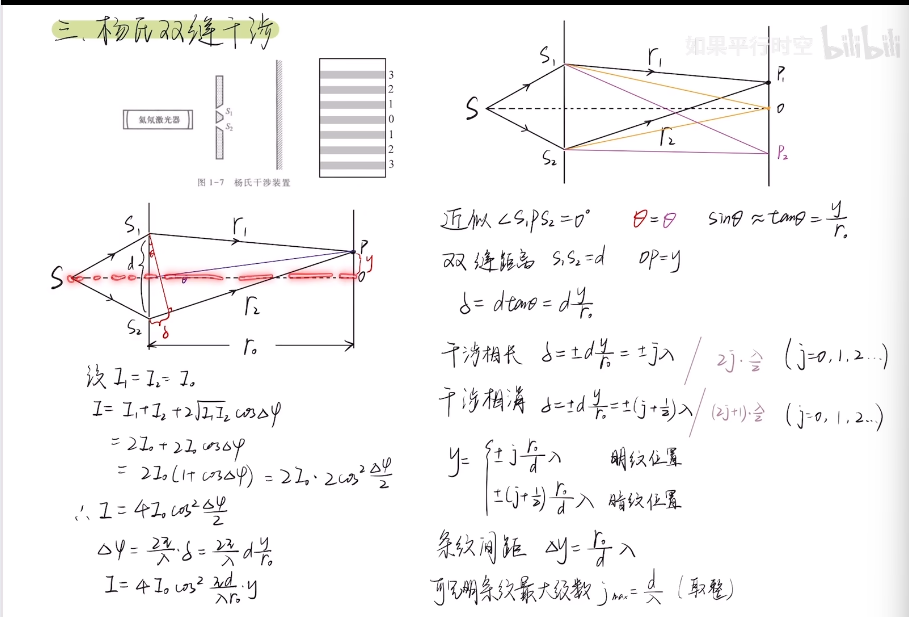 三、杨氏双缝干涉
如果平行时空 bilibili
氦氖激光器
S₁
S₂
3
2
1
0
1
2
3
图 1-7 杨氏干涉装置
S S₁ S₂ r₁ r₂ P₁ O P₂
S S₁ S₂ d θ θ δ r₁ r₂ P y O
r₀
设 I₁=I₂=I₀
I=I₁+I₂+2√I₁I₂ cosΔφ
=2I₀+2I₀cosΔφ
=2I₀(1+cosΔφ)=2I₀·2cos²Δφ/2
∴ I=4I₀cos²Δφ/2
Δφ=2π/λ·δ=2π/λ d y/r₀
I=4I₀cos² πd/λr₀·y
近似∠S₁PS₂=0° θ=θ sinθ≈tanθ=y/r₀
双缝距离 S₁S₂=d OP=y
δ=dtanθ=d y/r₀
干涉相长 δ=±d y/r₀=±jλ / 2j·λ/2 (j=0,1,2...)
干涉相消 δ=±d y/r₀=±(j+1/2)λ / (2j+1)·λ/2 (j=0,1,2...)
y= { ±j r₀/d λ 明纹位置
±(j+1/2) r₀/d λ 暗纹位置
条纹间距 Δy=r₀/d λ
可见明条纹最大级数 jmax=d/λ (取整)